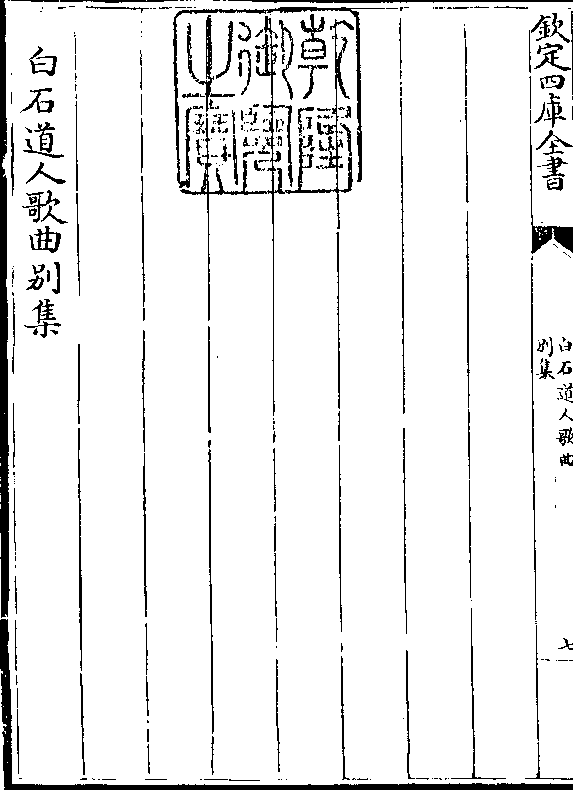 欽定四庫全書
白石道人歌曲
別集
七
乾隆
御覽
之寶
白石道人歌曲別集